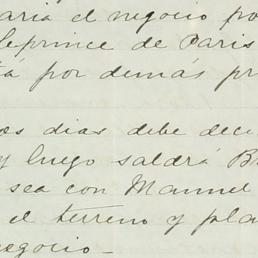 aria el negocio po
Leprince de Paris
tá por demás pr
os dias debe deci
y luego saldrá B
sea con Manuel
el terreno y pla
negocio_